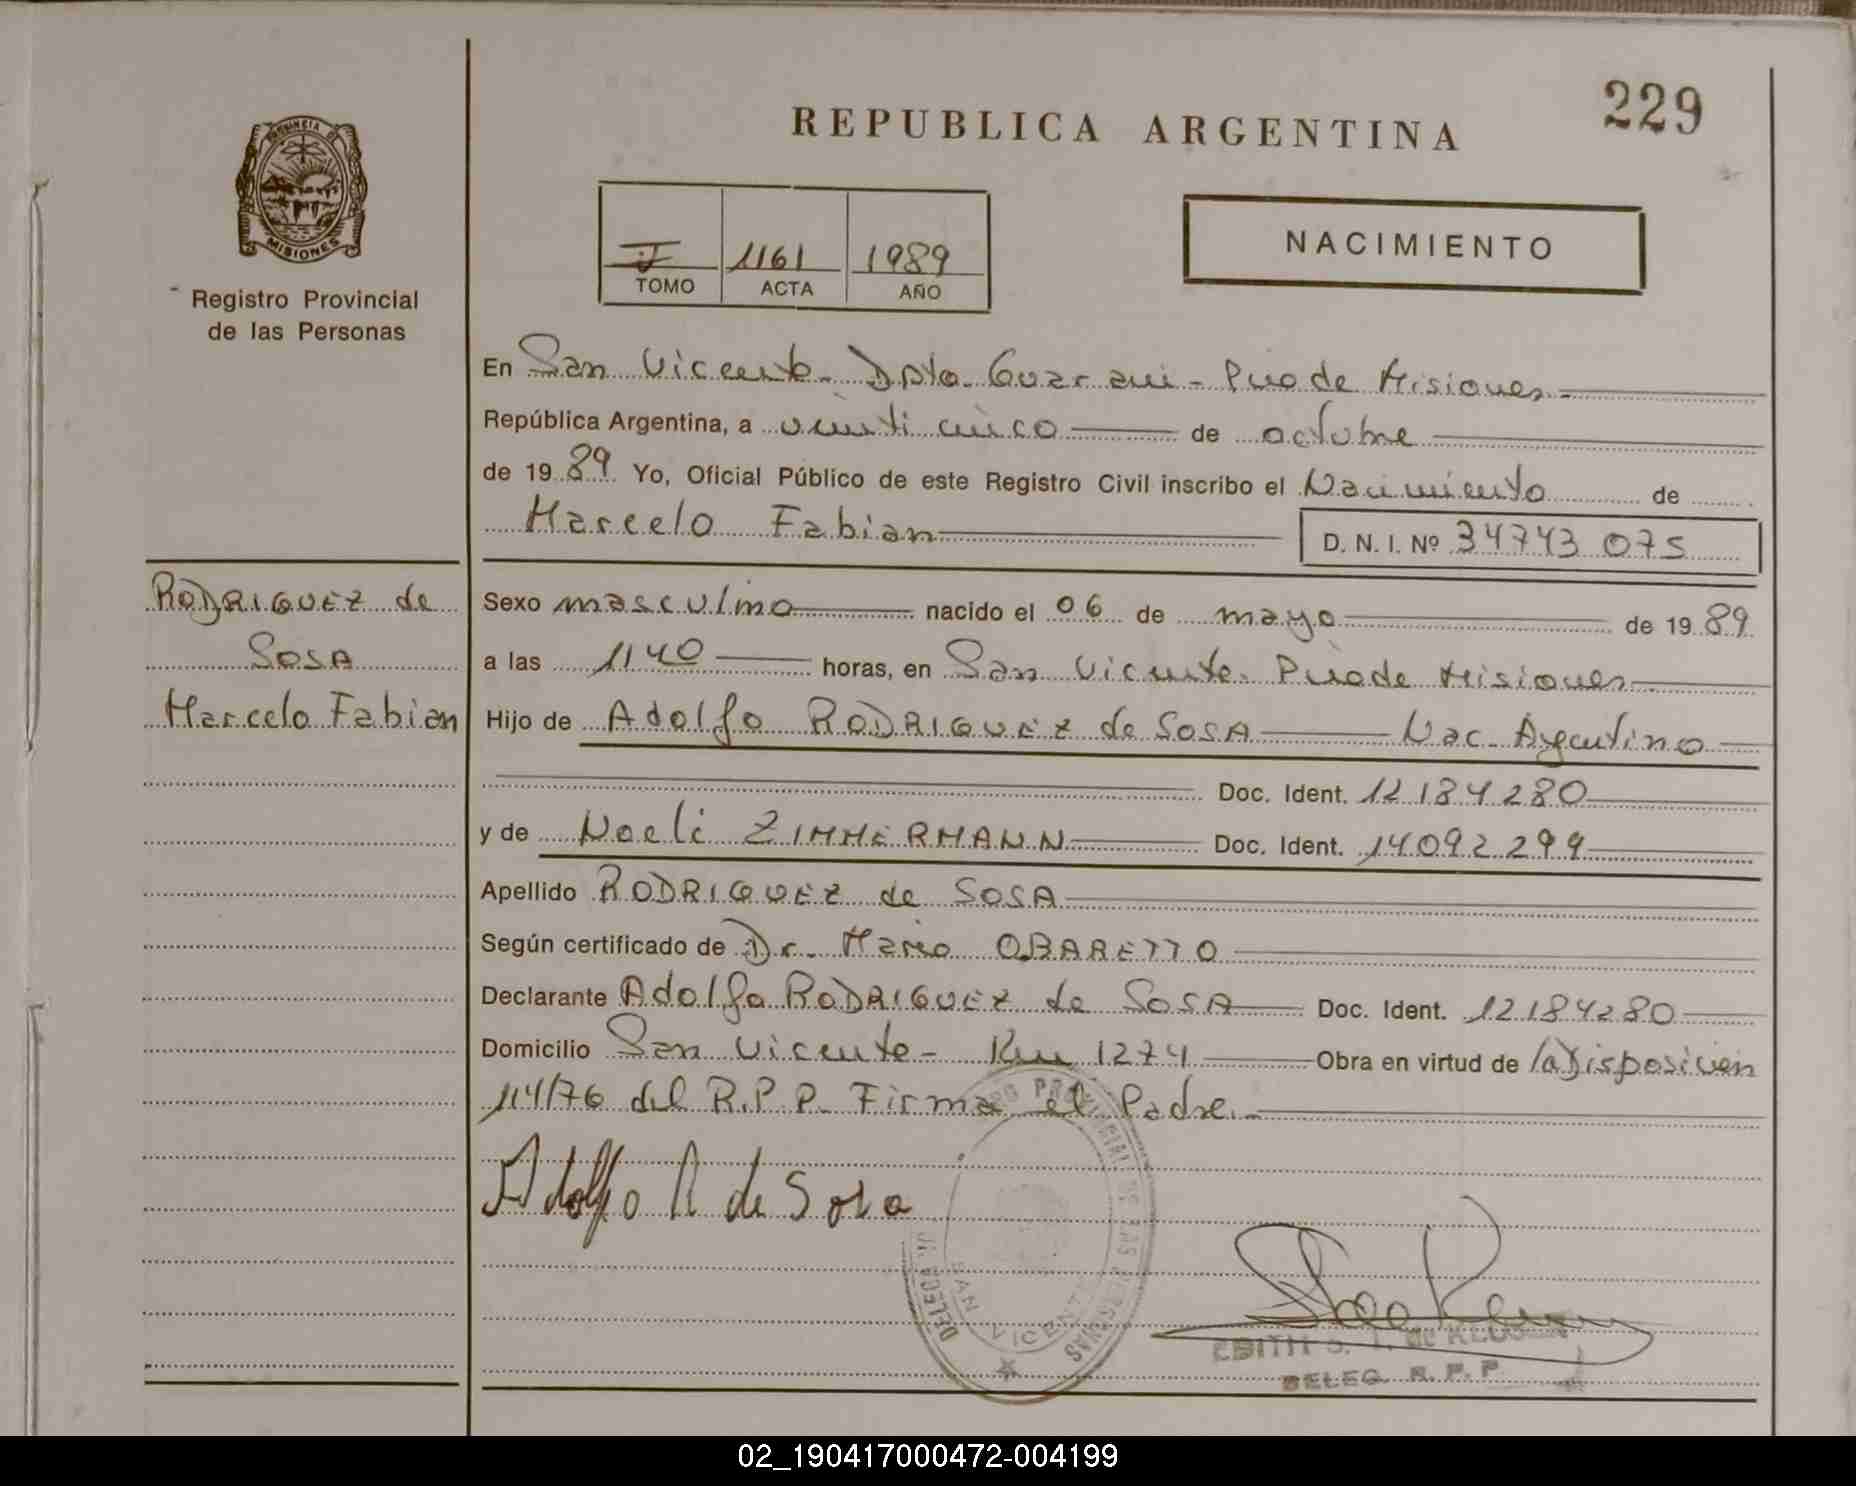 229
REPUBLICA ARGENTINA
PROVINCIA DE
MISIONES
Registro Provincial
de las Personas
I 1161 1989
TOMO ACTA AÑO
NACIMIENTO
En San Vicente - Dpto. Guarani - Pcia de Misiones
República Argentina, a veinti cinco de octubre
de 1989 Yo, Oficial Público de este Registro Civil inscribo el Nacimiento de
Marcelo Fabian D. N. I. Nº 34743 075
RODRIGUEZ de
SOSA
Marcelo Fabian
Sexo masculino nacido el 06 de mayo de 1989
a las 1140 horas, en San Vicente. Pcia de Misiones
Hijo de Adolfo RODRIGUEZ de SOSA Nac. Argentino
Doc. Ident. 12184280
y de Noeli ZIMMERMANN Doc. Ident. 14092299
Apellido RODRIGUEZ de SOSA
Según certificado de Dr. Mario OBARETTO
Declarante Adolfo RODRIGUEZ de SOSA Doc. Ident. 12184280
Domicilio San Vicente - Km 1274 Obra en virtud de la Disposicion
114/76 del R.P.P. Firma el Padre.-
Adolfo R de Sosa
PROVINCIAL DE LAS PERSONAS
SAN VICENTE
EDITH
DELEG. R. P. P.
02_190417000472-004199